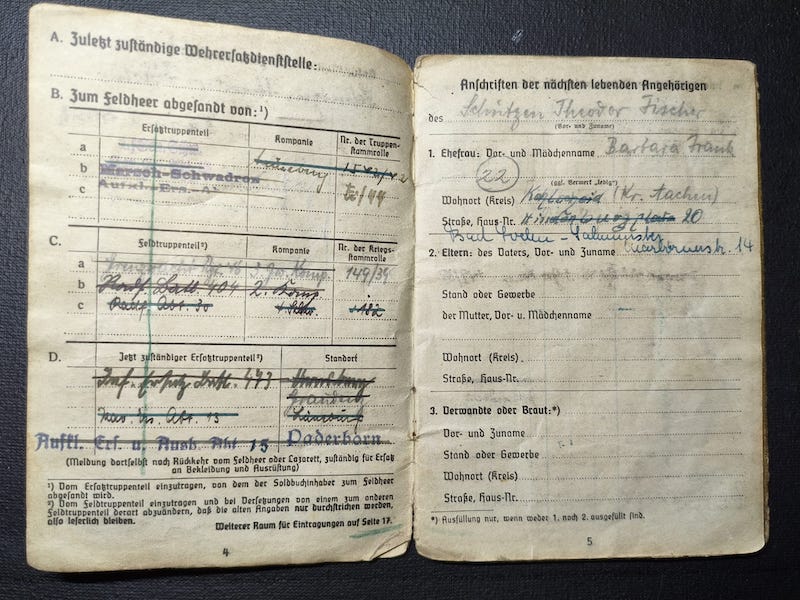 A. Zuletzt zuständige Wehrersatzdienststelle:
B. Zum Feldheer abgesandt von:¹)
Ersatztruppenteil Kompanie Nr. der Truppenstammrolle
a
b Marsch-Schwadron
Aufkl. Ers. A
c
C. Feldtruppenteil²) Kompanie Nr. der Kriegsstammrolle
a 3. Komp. 149/39
b Batl. 404 2. Komp.
c Abt.
D. Jetzt zuständiger Ersatztruppenteil²) Standort
Inf. Ersatz Batl. 473
Abt. 15
Aufkl. Ers. u. Ausb. Abt 15 Paderborn
(Meldung dortselbst nach Rückkehr vom Feldheer oder Lazarett, zuständig für Ersatz
an Bekleidung und Ausrüstung)
¹) Vom Ersatztruppenteil einzutragen, von dem der Soldbuchinhaber zum Feldheer
abgesandt wird.
²) Vom Feldtruppenteil einzutragen und bei Versetzungen von einem zum anderen
Feldtruppenteil derart abzuändern, daß die alten Angaben nur durchstrichen werden,
also leserlich bleiben.
Weiterer Raum für Eintragungen auf Seite 17.
4
Anschriften der nächsten lebenden Angehörigen
des Schützen Theodor Fischer
(Vor- und Zuname)
1. Ehefrau: Vor- und Mädchenname Barbara Frank
22 (ggf. Vermerk „ledig")
Wohnort (Kreis) (Kr. Aachen)
Straße, Haus-Nr. Hindenburgplatz 20
Bad Soden-Salmünster 14
2. Eltern: des Vaters, Vor- und Zuname
Stand oder Gewerbe
der Mutter, Vor- u. Mädchenname
Wohnort (Kreis)
Straße, Haus-Nr.
3. Verwandte oder Braut:*)
Vor- und Zuname
Stand oder Gewerbe
Wohnort (Kreis)
Straße, Haus-Nr.
*) Ausfüllung nur, wenn weder 1. noch 2. ausgefüllt sind.
5